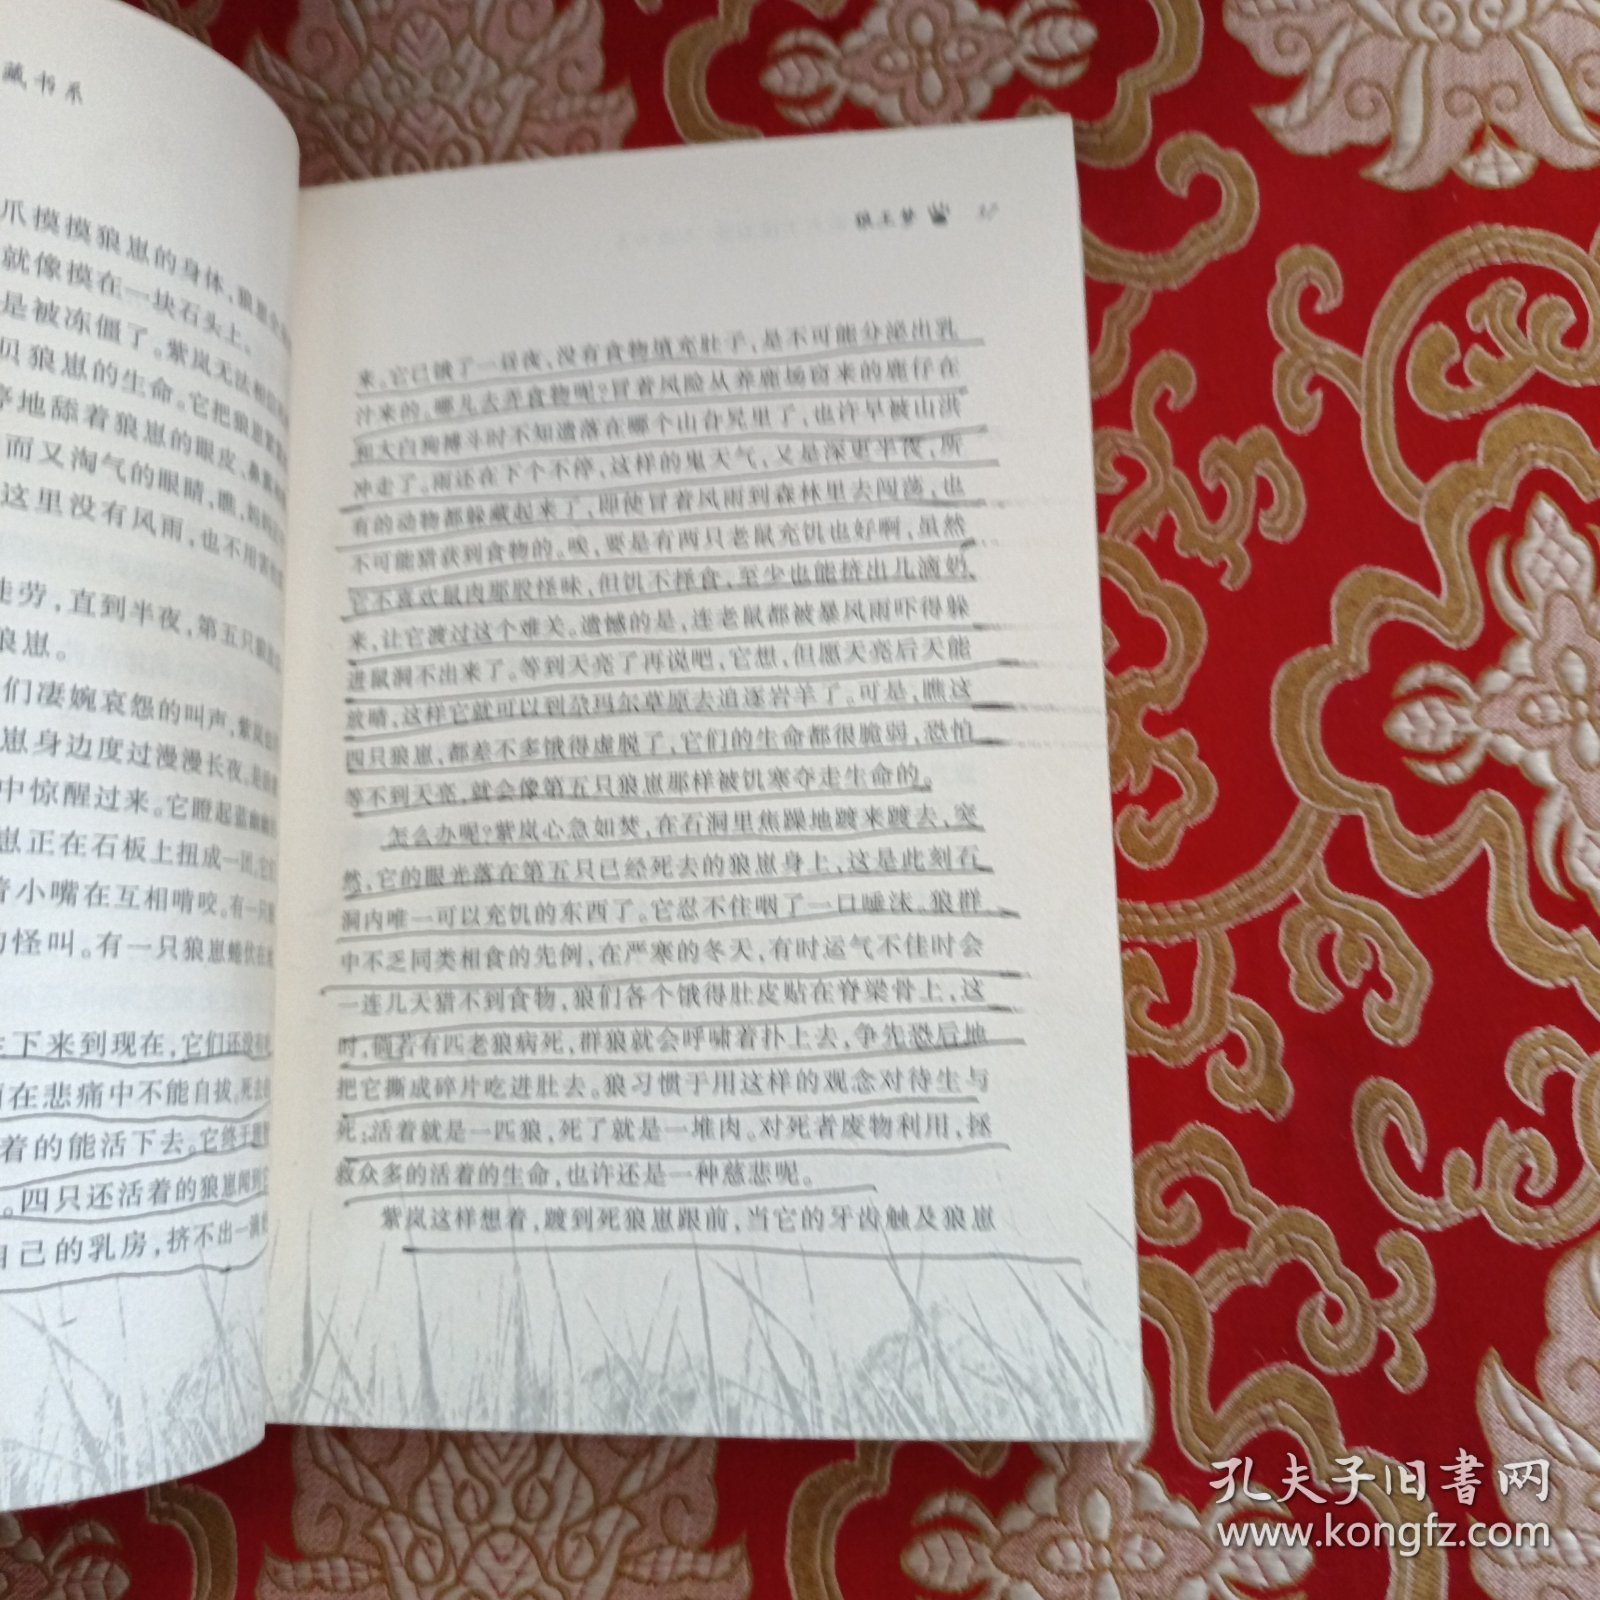 藏书系
爪摸摸狼崽的身体,狼崽
就像摸在一块石头上。
是被冻僵了。紫岚无法相信
贝狼崽的生命。它把狼崽
地舔着狼崽的眼皮、鼻
而又淘气的眼睛,瞧,妈妈
这里没有风雨,也不用害
徒劳,直到半夜,第五只狼崽
狼崽。
们凄婉哀怨的叫声,紫岚
崽身边度过漫漫长夜。是
中惊醒过来。它瞪起蓝幽幽
崽正在石板上扭成一团。它
着小嘴在互相啃咬。有一只
的怪叫。有一只狼崽蜷伏在
生下来到现在,它们还没有
在悲痛中不能自拔。死去
着的能活下去。它终于
。四只还活着的狼崽闻到它
自己的乳房,挤不出一滴
狼王梦
来。它已饿了一昼夜,没有食物填充肚子,是不可能分泌出乳
汁来的。哪儿去弄食物呢?冒着风险从养鹿场窃来的鹿仔在
和大白狗搏斗时不知遗落在哪个山旮旯里了,也许早被山洪
冲走了。雨还在下个不停,这样的鬼天气,又是深更半夜,所
有的动物都躲藏起来了,即使冒着风雨到森林里去闯荡,也
不可能猎获到食物的。唉,要是有两只老鼠充饥也好啊,虽然
它不喜欢鼠肉那股怪味,但饥不择食,至少也能挤出几滴奶
来,让它渡过这个难关。遗憾的是,连老鼠都被暴风雨吓得躲
进鼠洞不出来了。等到天亮了再说吧,它想,但愿天亮后天能
放晴,这样它就可以到尕玛尔草原去追逐岩羊了。可是,瞧这
四只狼崽,都差不多饿得虚脱了,它们的生命都很脆弱,恐怕
等不到天亮,就会像第五只狼崽那样被饥寒夺走生命的。
怎么办呢?紫岚心急如焚,在石洞里焦躁地踱来踱去,突
然,它的眼光落在第五只已经死去的狼崽身上,这是此刻石
洞内唯一可以充饥的东西了。它忍不住咽了一口唾沫。狼群
中不乏同类相食的先例,在严寒的冬天,有时运气不佳时会
一连几天猎不到食物,狼们各个饿得肚皮贴在脊梁骨上,这
时,倘若有匹老狼病死,群狼就会呼啸着扑上去,争先恐后地
把它撕成碎片吃进肚去。狼习惯于用这样的观念对待生与
死;活着就是一匹狼,死了就是一堆肉。对死者废物利用,拯
救众多的活着的生命,也许还是一种慈悲呢。
紫岚这样想着,踱到死狼崽跟前,当它的牙齿触及狼崽
孔夫子旧书网
www.kongfz.com